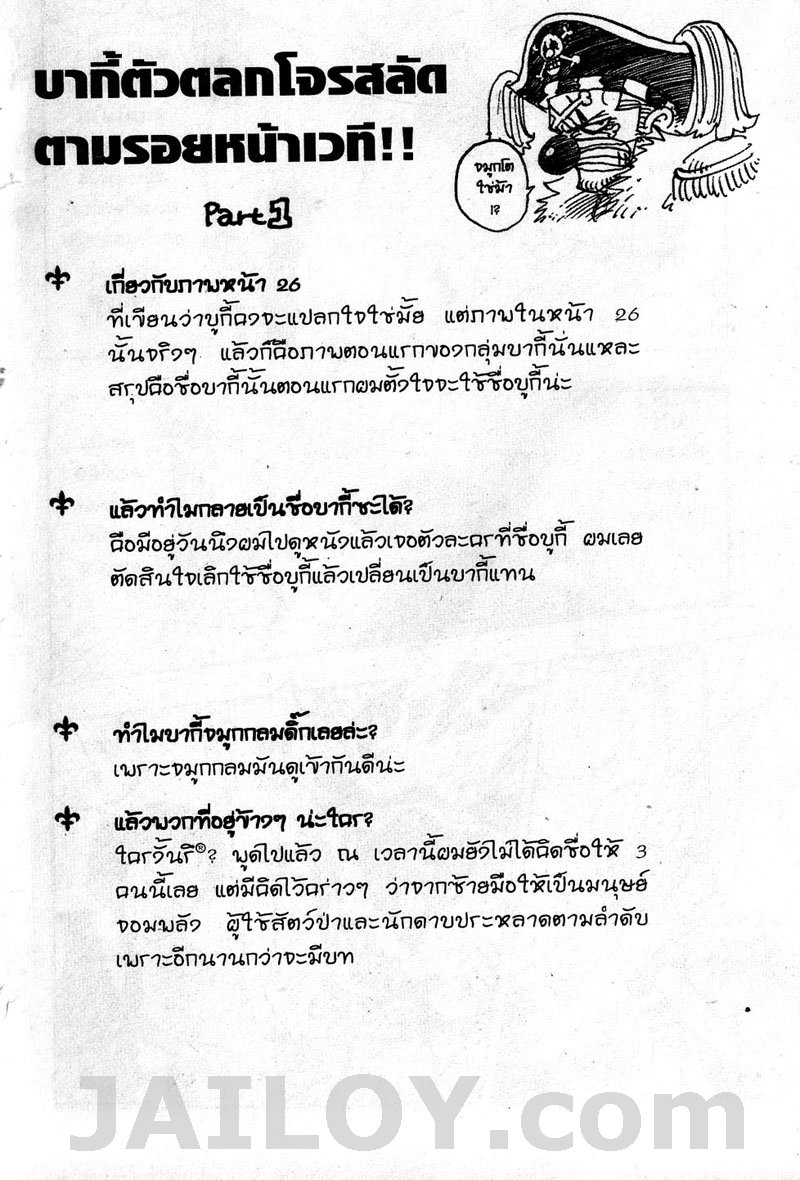 บากี้ตัวตลกโจรสลัด
ตามรอยหน้าเวที!!
Part 1
จมูกโต
ใช่ม้า
!?
เกี่ยวกับภาพหน้า 26
ที่เขียนว่าบูกี้คงจะแปลกใจใช่มั้ย แต่ภาพในหน้า 26
นั้นจริงๆ แล้วก็คือภาพตอนแรกของกลุ่มบากี้นั่นแหละ
สรุปคือชื่อบากี้นั้นตอนแรกผมตั้งใจจะใช้ชื่อบูกี้น่ะ
แล้วทำไมกลายเป็นชื่อบากี้ซะได้?
คือมีอยู่วันนึงผมไปดูหนังแล้วเจอตัวละครที่ชื่อบูกี้ ผมเลย
ตัดสินใจเลิกใช้ชื่อบูกี้แล้วเปลี่ยนเป็นบากี้แทน
ทำไมบากี้จมูกกลมดิ๊กเลยล่ะ?
เพราะจมูกกลมมันดูเข้ากันดีน่ะ
แล้วพวกที่อยู่ข้างๆ น่ะใคร?
ใครงั้นรึ? พูดไปแล้ว ณ เวลานี้ผมยังไม่ได้คิดชื่อให้ 3
คนนี้เลย แต่มีคิดไว้คร่าวๆ ว่าจากซ้ายมือให้เป็นมนุษย์
จอมพลัง ผู้ใช้สัตว์ป่าและนักดาบประหลาดตามลำดับ
เพราะอีกนานกว่าจะมีบท
JAILOY.com